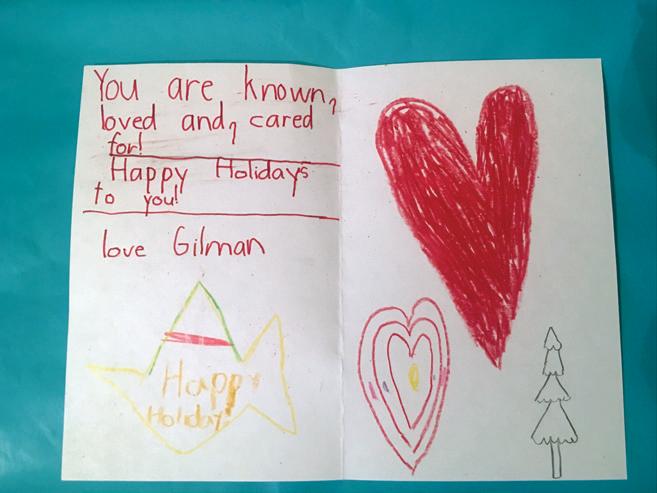 You are known,
loved and, cared
for!
Happy Holidays
to you!
love Gilman
Happy
Holiday!